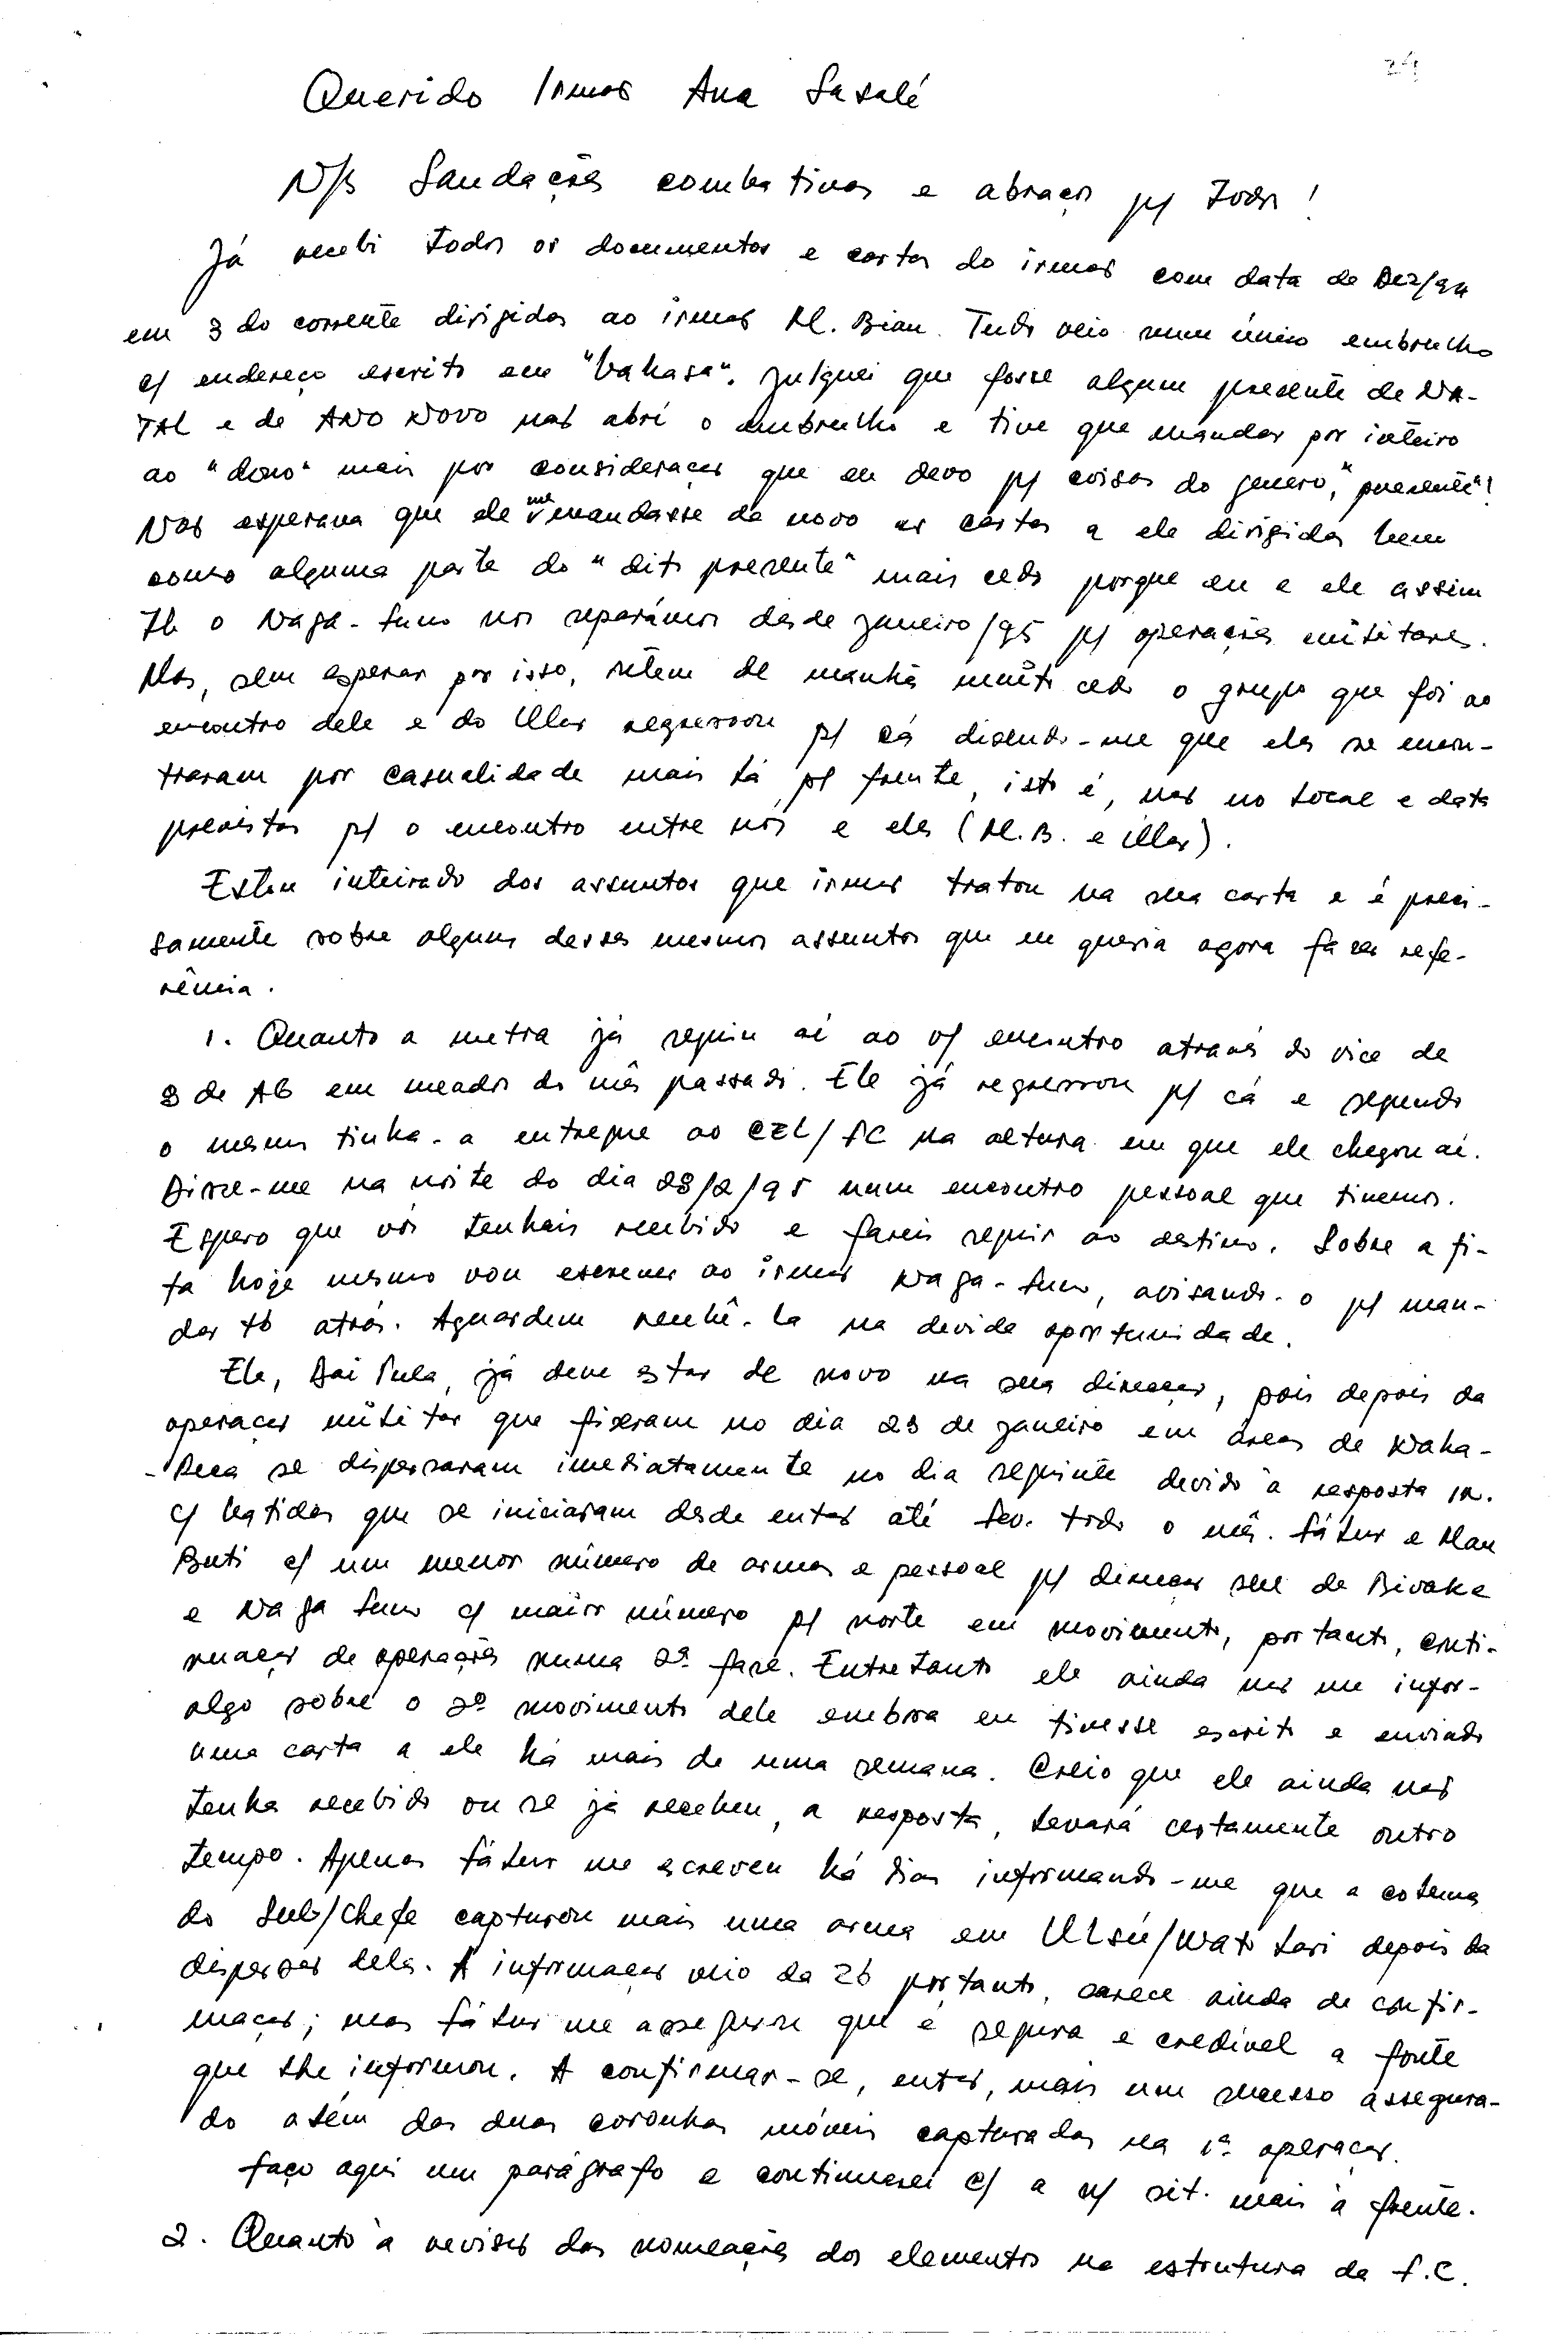 24
Querido Irmão Ana Sasalé
N/s Saudações combativas e abraços p/ Todos!
Já recebi todos os documentos e cartas do irmão com data de Dez/94
em 3 do corrente dirigidas ao irmão M. Bian. Tudo veio num único embrulho
c/ endereço escrito em "bahasa". Julguei que fosse algum presente de NA-
TAL e de ANO NOVO não abri o embrulho e tive que mandar por inteiro
ao "dono" mais por consideração que eu devo p/ coisas do genero, "presente"!
Não esperava que ele me mandasse de novo as cartas a ele dirigidas bem
como alguma parte do "dito presente" mais cedo porque eu e ele assim
Tb o Naga-Suno nos separámos desde Janeiro/95 p/ operações militares.
Mas, sem esperar por isso, ontem de manhã muito cedo o grupo que foi ao
encontro dele e do Ular regressou p/ cá dizendo-me que eles se encon-
traram por casualidade mais lá p/ frente, isto é, não no local e data
previstos p/ o encontro entre nós e eles (M.B. e Ular).
Estou inteirado dos assuntos que irmão tratou na sua carta e é preci-
samente sobre alguns desses mesmos assuntos que eu queria agora fazer refe-
rência.
1. Quanto a metra já seguiu aí ao v/ encontro através do vice de
3 de AB em meados do mês passado. Ele já regressou p/ cá e segundo
o mesmo tinha-a entregue ao CEL/FC na altura em que ele chegou aí.
Disse-me na noite do dia 28/2/95 num encontro pessoal que tivemos.
Espero que vós tenhais recebido e fareis seguir ao destino. Sobre a fi-
ta hoje mesmo vou escrever ao irmão Naga-Suno, avisando-o p/ man-
dar tb atrás. Aguardem recebê-la na devida oportunidade.
Ele, Dai Pula, já deve estar de novo na sua direcção, pois depois da
operação militar que fizeram no dia 23 de Janeiro em áreas de Waka-
-Reca se dispersaram imediatamente no dia seguinte devido à resposta in.
c/ batidas que se iniciaram desde então até Fev. todo o mês. Fálur e Mau
Buti c/ um menor número de armas e pessoal p/ direcção sul de Bivake
e Naga Suno c/ maior número p/ norte em movimento, portanto, conti-
nuação de operações numa 2ª fase. Entretanto ele ainda não me infor-
algo sobre o 2º movimento dele embora eu tivesse escrito e enviado
uma carta a ele há mais de uma semana. Creio que ele ainda não
tenha recebido ou se já recebeu, a resposta, levará certamente outro
tempo. Apenas Fálur me escreveu há dias informando-me que a coluna
do Sub/Chefe capturou mais uma arma em Ulsú/Wato Lari depois da
dispersão deles. A informação veio da 2b portanto, carece ainda de confir-
mação; mas Fálur me assegurou que é segura e credível a fonte
que lhe informou. A confirmar-se, então, mais um sucesso assegura-
do além das duas coronhas móveis capturadas na 1ª operação.
Faço aqui um parágrafo e continuarei c/ a n/ sit. mais à frente.
2. Quanto à revisão das nomeações dos elementos na estrutura da F.C.